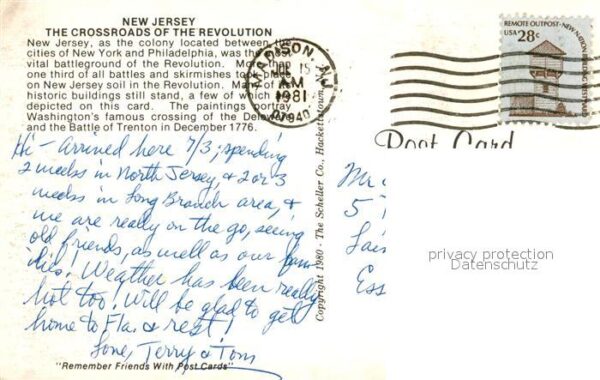 NEW JERSEY
THE CROSSROADS OF THE REVOLUTION
New Jersey, as the colony located between the
cities of New York and Philadelphia, was the most
vital battleground of the Revolution. More than
one third of all battles and skirmishes took place
on New Jersey soil in the Revolution. Many of the
historic buildings still stand, a few of which are
depicted on this card. The paintings portray
Washington's famous crossing of the Delaware
and the Battle of Trenton in December 1776.
MADISON, N.J.
15
AM
1981
07940
REMOTE OUTPOST-NEW NATION
USA 28c
Post Card
Hi - Arrived here 7/3; spending
2 weeks in North Jersey, & 2 or 3
weeks in Long Branch area, &
we are really on the go, seeing
old friends, as well as our fam
ilies! Weather has been really
hot too! Will be glad to get
home to Fla. & rest!
Love, Terry & Tom
"Remember Friends With Post Cards"
Copyright 1980 - The Scheller Co., Hackettstown,
Mr
5
Ess
privacy protection
Datenschutz